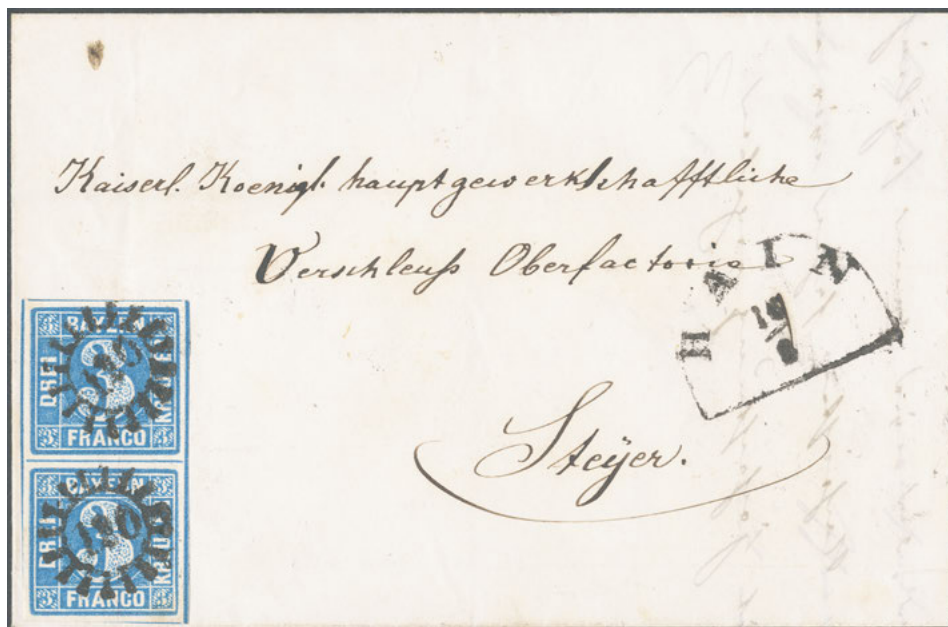 Kaiserl. Koenigl. hauptgewerkschafftliche
Verschleuß Oberfactorie
HAIN
Steÿer.
BAYERN
DREI
3
KREUZER
FRANCO
BAYERN
DREI
3
KREUZER
FRANCO